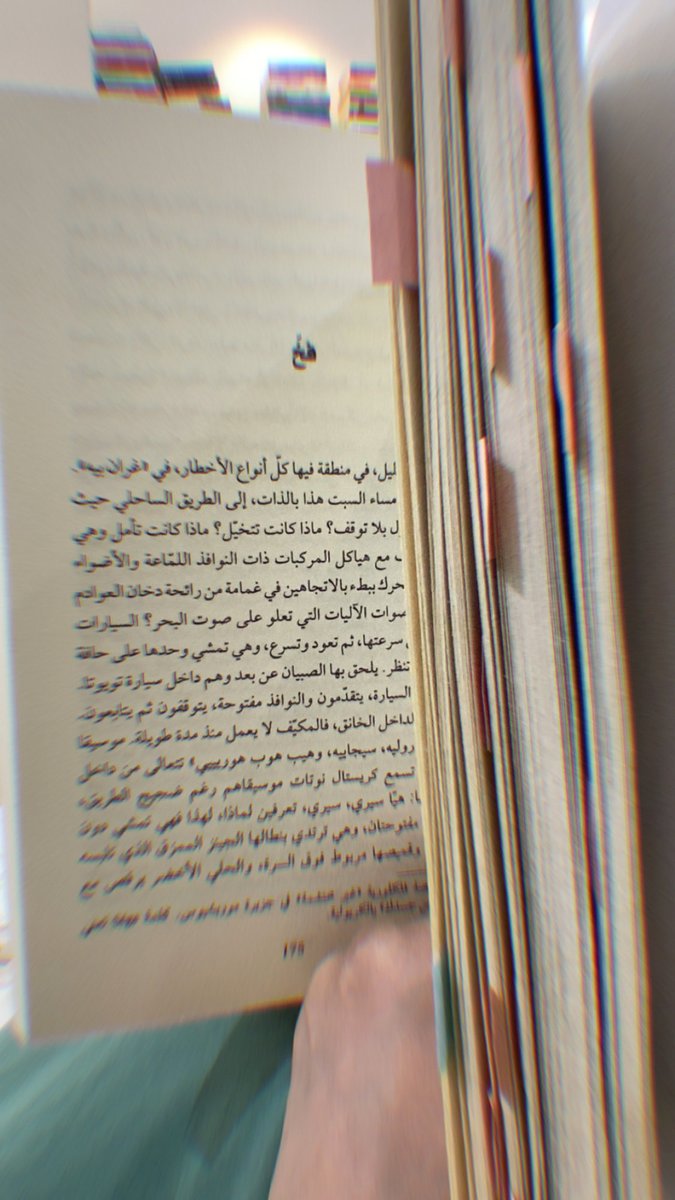 فخّ
ليل، في منطقة فيها كلّ أنواع الأخطار، في «غران بيه».
مساء السبت هذا بالذات، إلى الطريق الساحلي حيث
بلا توقف؟ ماذا كانت تتخيّل؟ ماذا كانت تأمل وهي
مع هياكل المركبات ذات النوافذ اللمّاعة والأضواء
حرك ببطء بالاتجاهين في غمامة من رائحة دخان العوادم
صوات الآليات التي تعلو على صوت البحر؟ السيارات
سرعتها، ثم تعود وتسرع، وهي تمشي وحدها على حافة
تنظر. يلحق بها الصبيان عن بعد وهم داخل سيارة تويوتا.
السيارة، يتقدّمون والنوافذ مفتوحة، يتوقفون ثم يتابعون.
لداخل الخانق، فالمكيّف لا يعمل منذ مدة طويلة. موسيقا
روليه، سيجاييه، وهيب هوب هورييبي» تتعالى من داخل
تسمع كريستال نوتات موسيقاهم رغم ضجيج الطريق،
هيّا سيري، سيري، تعرفين لماذا، لهذا فهي تمشي دون
مفتوحتان، وهي ترتدي بنطالها الجينز الممزق الذي
وقميصها مربوط فوق السرة، والحلي الأخضر يرقص مع
في جزيرة موريشيوس.
175